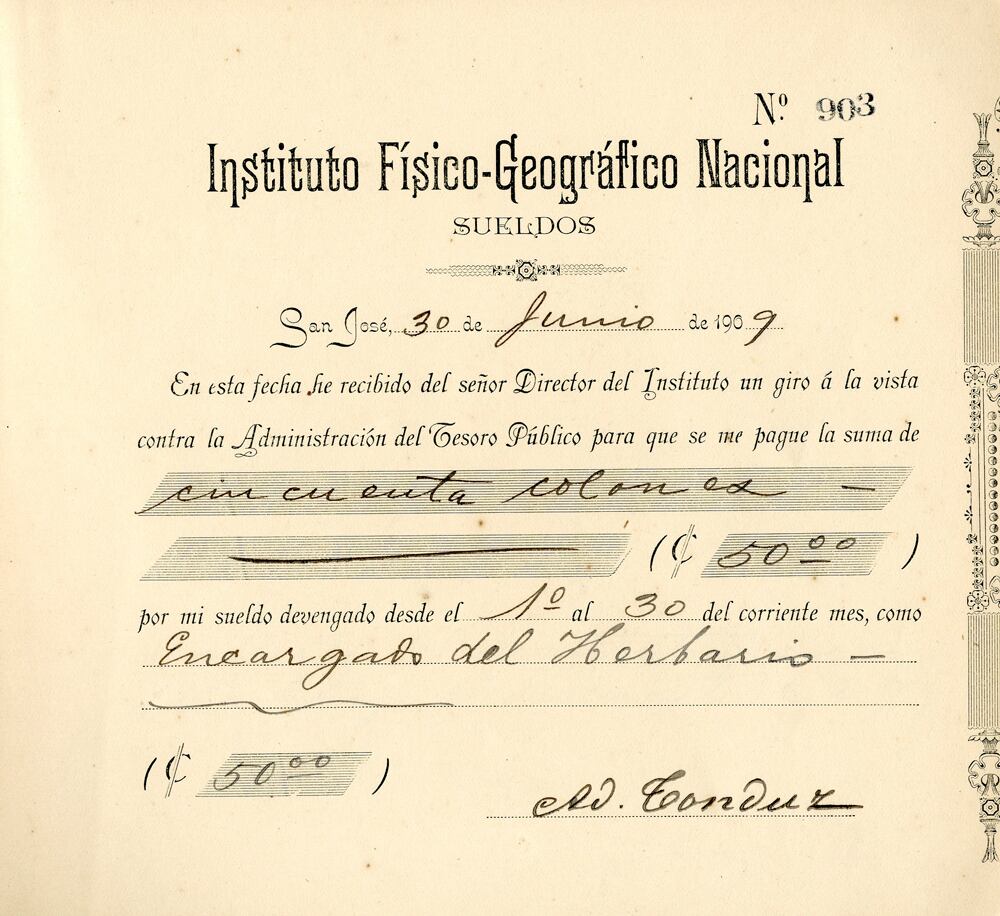 Nº 903
Instituto Físico-Geográfico Nacional
SUELDOS
San José, 30 de Junio de 1909
En esta fecha he recibido del señor Director del Instituto un giro á la vista
contra la Administración del Tesoro Público para que se me pague la suma de
cincuenta colones —
(₡ 50⁰⁰ )
por mi sueldo devengado desde el 1º al 30 del corriente mes, como
Encargado del Herbario —
(₡ 50⁰⁰ )
Ad. Tonduz